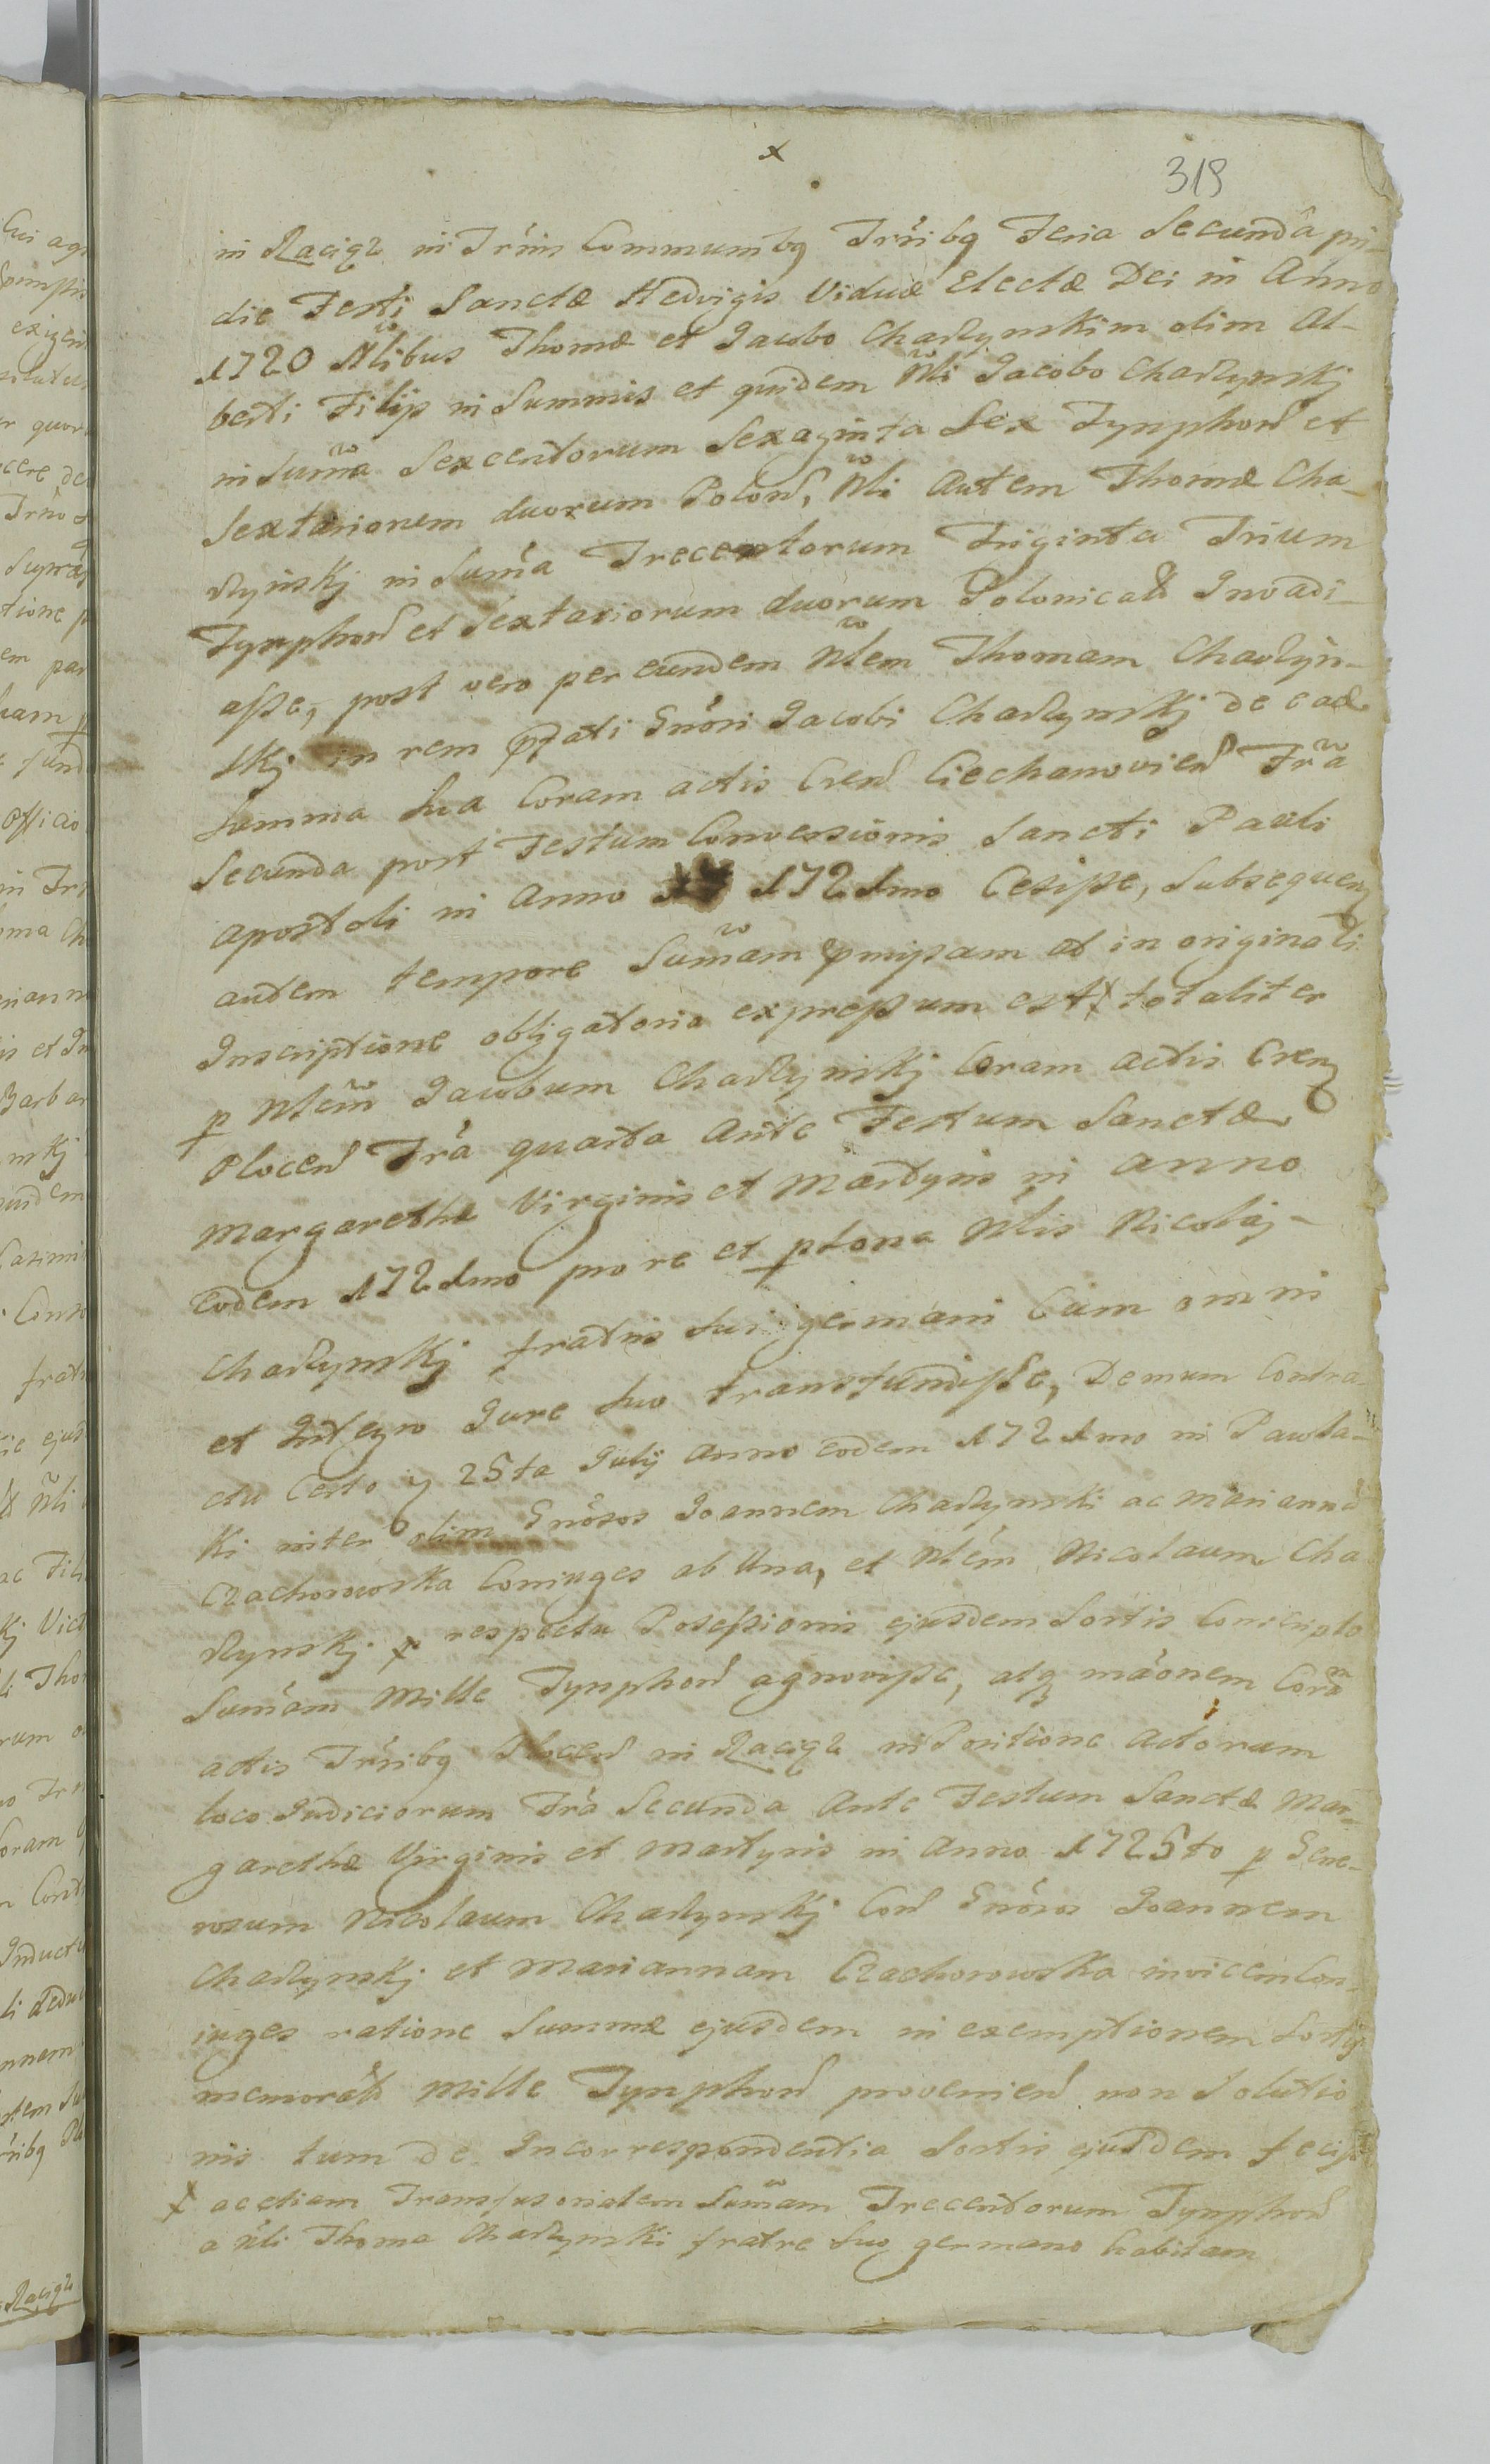 x
319
in Raciąz in Trinis Communibq Tribq Feria Secundâ pri-
die Festi Sanctæ Hedvigis Viduæ Electæ Dei in Anno
1720 Nlibus Thomæ et Jacobo Charzynskim olim Al-
berti Filijs in Summis et quidem Nli Jacobo Charzynskj
in Sum̃a Sexcentorum Sexaginta Sex Tynphon et
Sextarionem duorum Polon, Nli Autem Thomæ Cha-
rzynskj in Sum̃a Trecentorum Triginta Trium
Tynphon et Sextariorum duorum Polonical Invadi-
asse, post vero per eundem Nlem Thomam Charzyn-
skj in rem pfati Gnõsi Jacobi Charzynskj de ead
Summa Sua Coram actis Cren Ciechanovien Frã
Secunda post Festum Conversionis Sancti Pauli
Apostoli in Anno 1721mo Cesisse, Subsequenz
autem tempore Sum̃am pmissam et in originali
Inscriptione obligatoria expressum est x totaliter
p Nlem̃ Jacobum Charzynskj Coram Actis Crenz
Plocen Frã quarta Ante Festum Sanctæ
Margarethæ Virginis et Martyris in Anno
Eodem 1721mo pro re et psona Nlis Nicolaj-
Charzynskj fratris sui germani Cum omni
et Integro Jure suo transfundisse, Demum Contra-
ctu Certo 25ta Julij Anno eodem 1721mo in Pawla-
Ki inter olim Gnõsos Joannem Charzynski ac Mariannã
Czachorowska Coniuges ab Una, et Nlem Nicolaum Cha
rzynskj respectu Posessionis ejusdem Sortis Conscripto
Sum̃am Mille Tynphon agnovisse, atq mãonem Corã
actis Trribq Plocen in Raciąz in Positione Actorum
loco Judiciorum Frã Secunda Ante Festum Sanctæ Mar-
garethæ Virginis et Martyris in Anno 1725to p Gene-
rosum Nicolaum Charzynskj Con Gnõsos Joannem
Charzynskj et Mariannam Czachorowska invicem Con-
iuges ratione Summæ ejusdem in exemptionem Sortis
memorat Mille Tynphon provenien non Solutio
nis tum de Incorrespondentia Sortis ejusdem fecisse
x ac etiam Transfusorialem Sum̃am Trecentorum Tynphon
a Nli Thoma Charzynski fratre Suo germano habitam